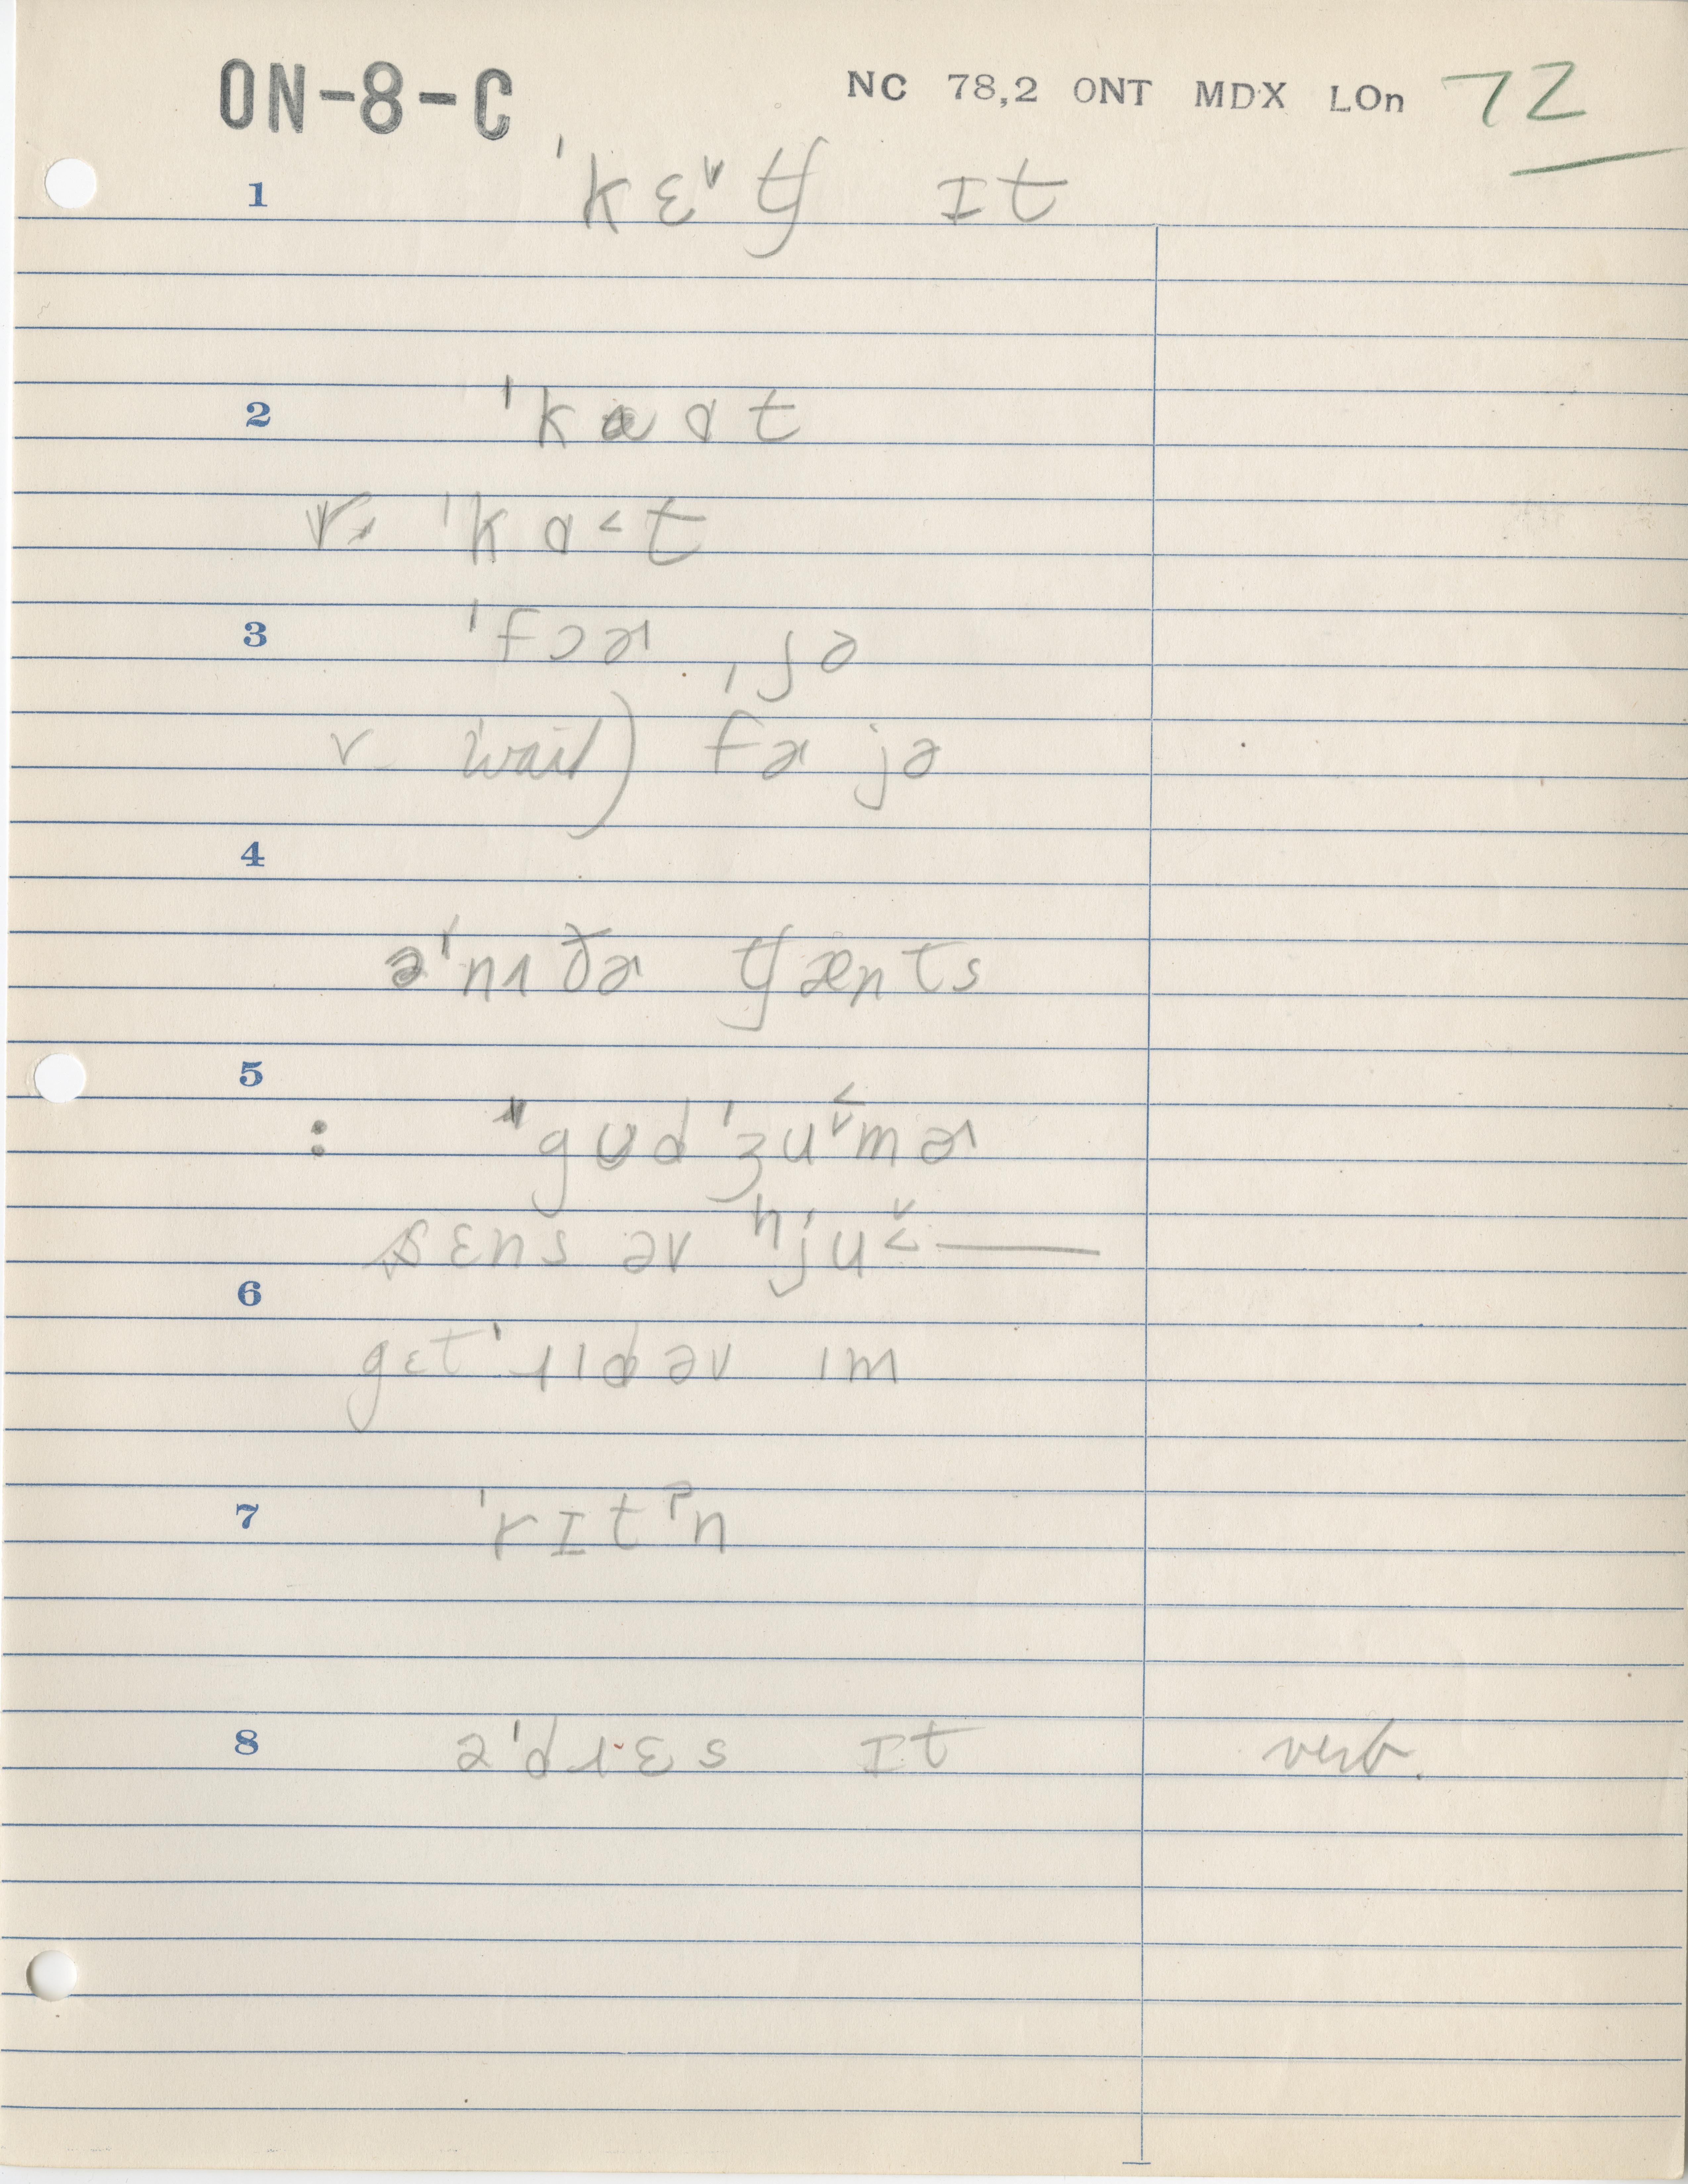 ON-8-C NC 78,2 ONT MDX LOn 72
1 ˈkɛ˅tʃ ɪt
2 ˈkɑɑt
v. ˈkɑ˂t
3 ˈfɔɚ ˌjə
v. wait) fɚ jə
4
əˈnʌðɚ tʃænts
5
: "gʊdˈʒu˂˅mɚ
sɛns əv hju˅˂—
6
gɛtˈɹɪdəv ɪm
7 ˈrɪtˀn
8 əˈdɹɛs ɪt verb.